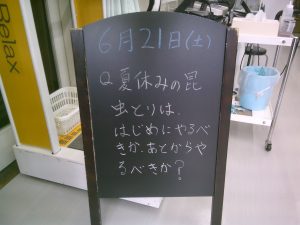 Relax
6月21日(土)
Q 夏休みの昆
虫とりは、
はじめにやるべ
きか、あとからや
るべきか?